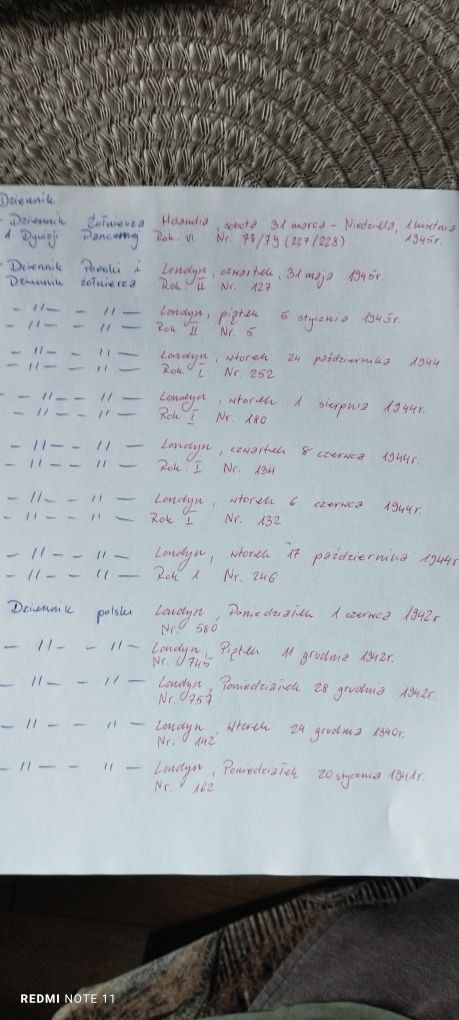 Dziennik
- Dziennik Żołnierza Holandia, sobota 31 marca - Niedziela, 1 kwietnia
1 Dywizji Pancernej Rok. VI Nr. 78/79 (227/228) 1945r.
- Dziennik Polski i Londyn, czwartek, 31 maja 1945r.
Dziennik żołnierza Rok. II Nr. 127
- 11 - - 11 - Londyn, piątek 5 stycznia 1945r.
- 11 - - 11 - Rok II Nr. 5
- 11 - - 11 - Londyn, wtorek 24 października 1944
- 11 - - 11 - Rok I Nr. 252
- 11 - - 11 - Londyn, wtorek 1 sierpnia 1944r.
- 11 - - 11 - Rok I Nr. 180
- 11 - - 11 - Londyn, czwartek 8 czerwca 1944r.
- 11 - - 11 - Rok. I Nr. 134
- 11 - - 11 - Londyn, wtorek 6 czerwca 1944r.
- 11 - - 11 - Rok I Nr. 132
- 11 - - 11 - Londyn, wtorek 17 października 1944r
- 11 - - 11 - Rok 1 Nr. 246
Dziennik polski Londyn, Poniedziałek 1 czerwca 1942r
Nr. 580
- 11 - - 11 - Londyn, Piątek 11 grudnia 1942r.
Nr. 745
- 11 - - 11 - Londyn, Poniedziałek 28 grudnia 1942r.
Nr. 757
- 11 - - 11 - Londyn, Wtorek 24 grudnia 1940r.
Nr. 142
- 11 - - 11 - Londyn, Poniedziałek 20 stycznia 1941r.
Nr. 162
REDMI NOTE 11